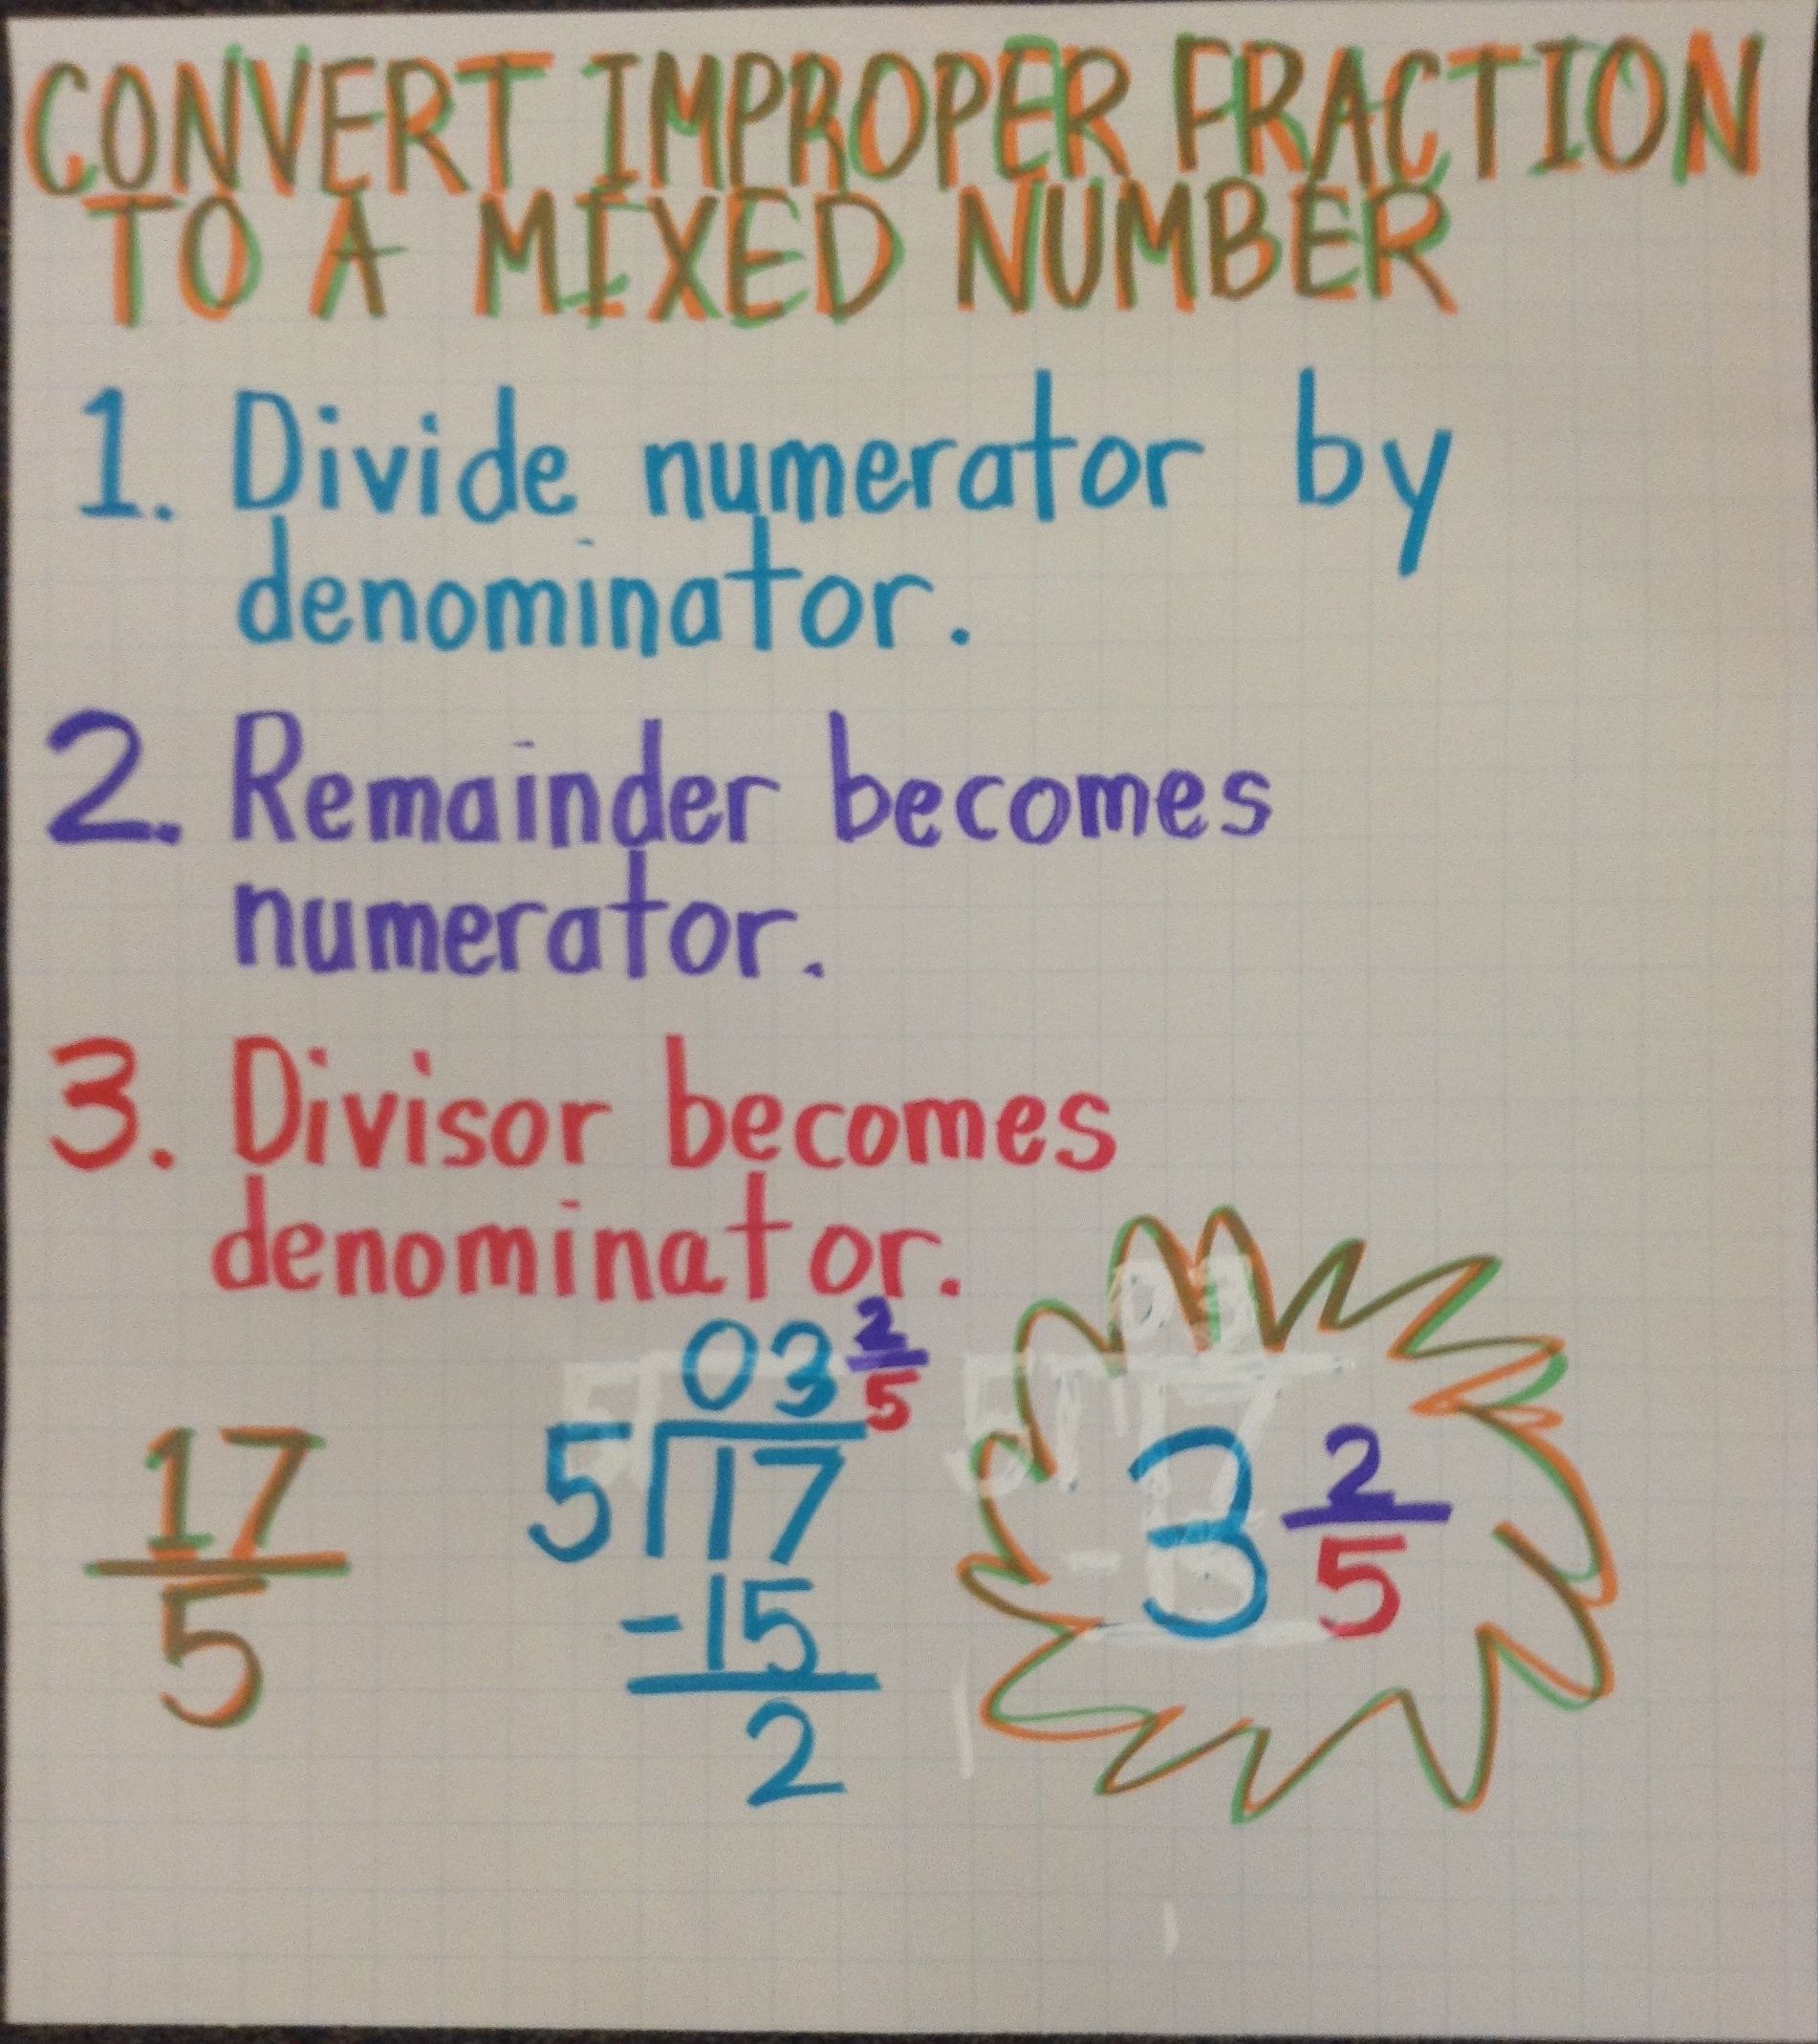 CONVERT IMPROPER FRACTION
TO A MIXED NUMBER
1. Divide numerator by
denominator.
2. Remainder becomes
numerator.
3. Divisor becomes
denominator.
17/5
03 2/5
5 17
-15
2
3 2/5